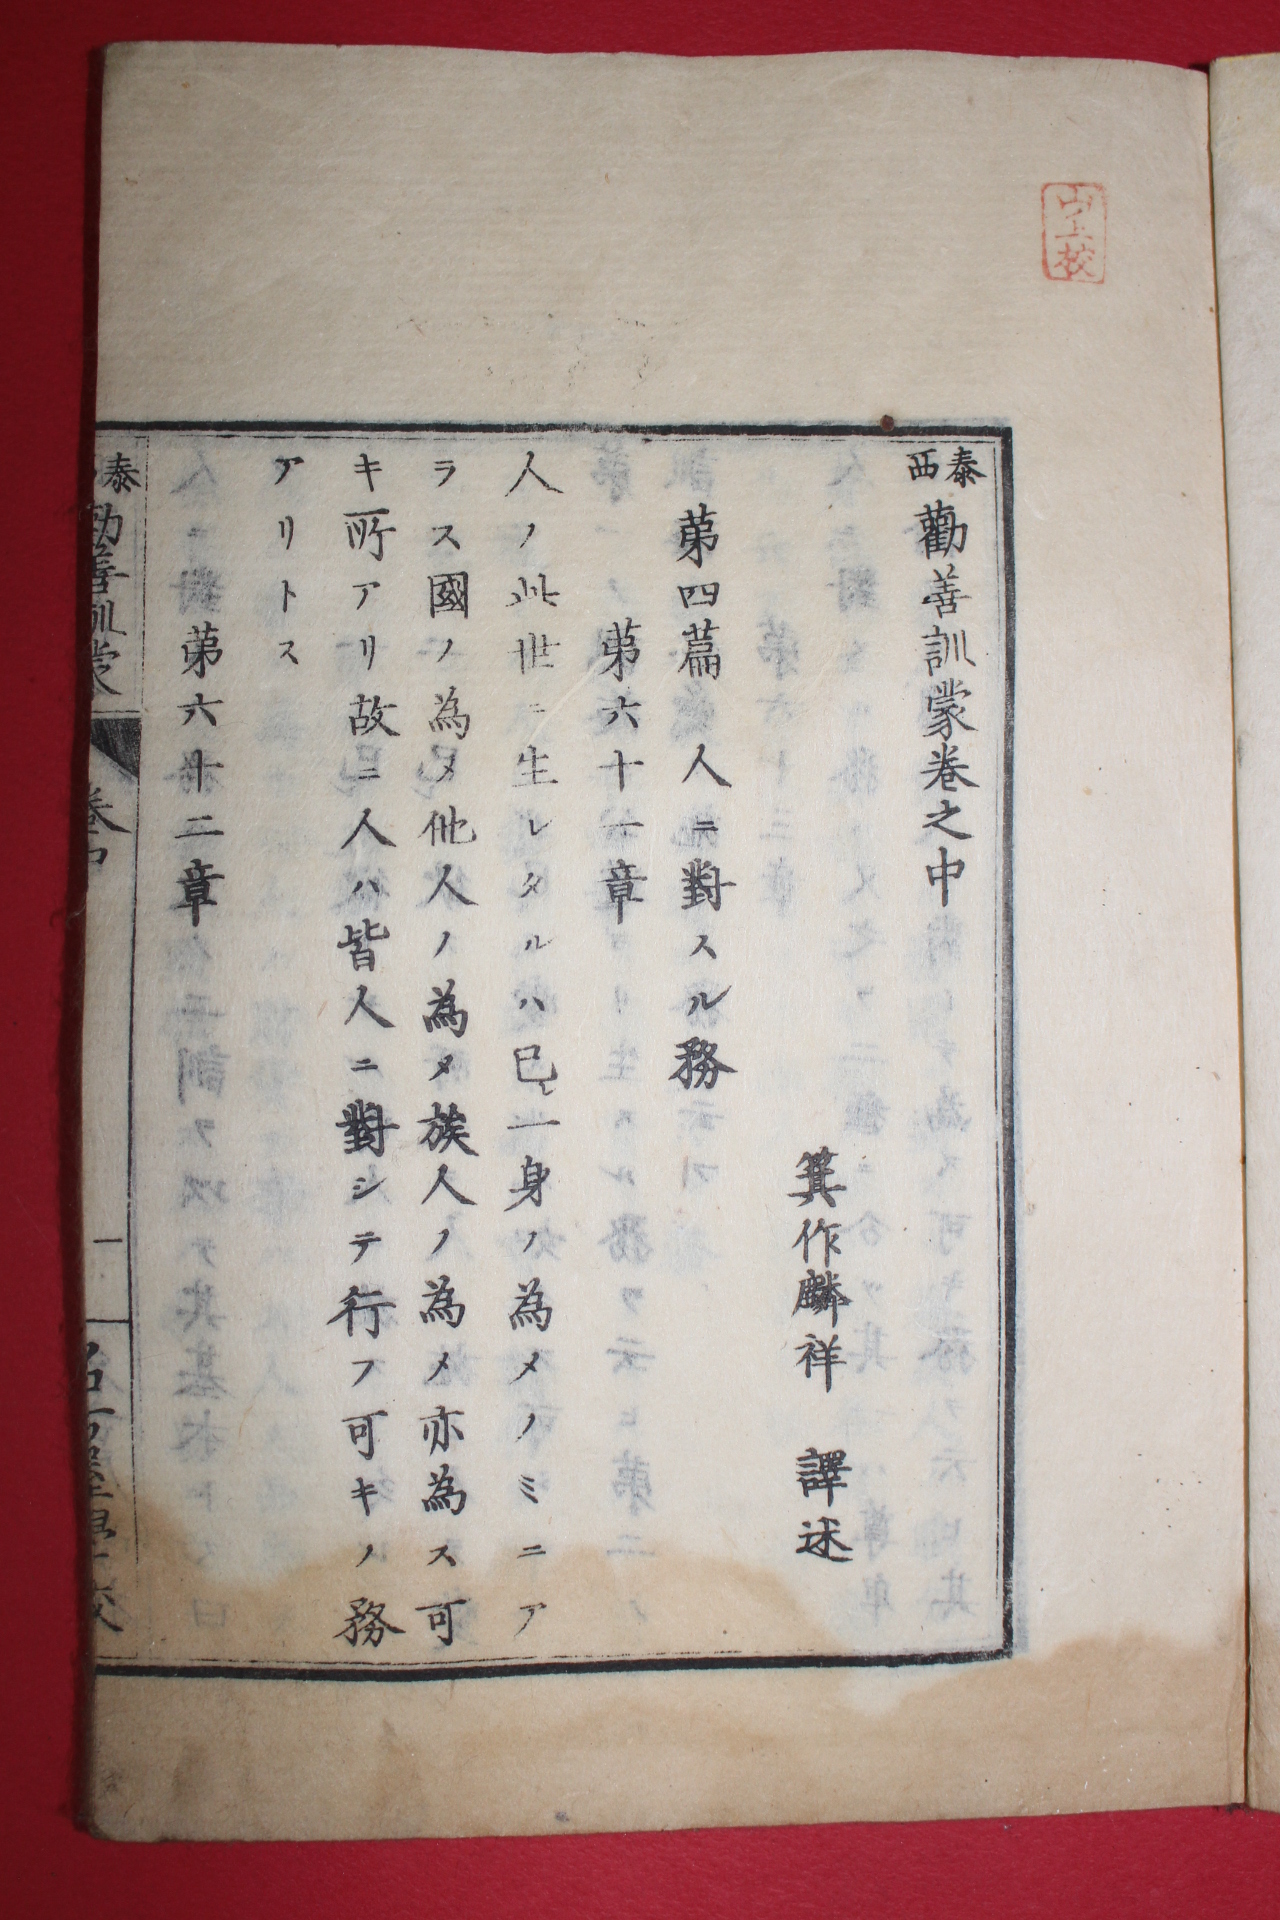 泰西勸善訓蒙卷之中
箕作麟祥 譯述
第四篇 人ニ對スル務
第六十一章
人ノ此世ニ生レタルハ己一身ノ為メノミニア
ラス國ノ為メ他人ノ為メ族人ノ為メ亦為ス可
キ所アリ故ニ人ハ皆人ニ對シテ行フ可キノ務
アリトス
第六十二章
泰 勸善訓蒙 卷中 一 名古屋學校
山上校